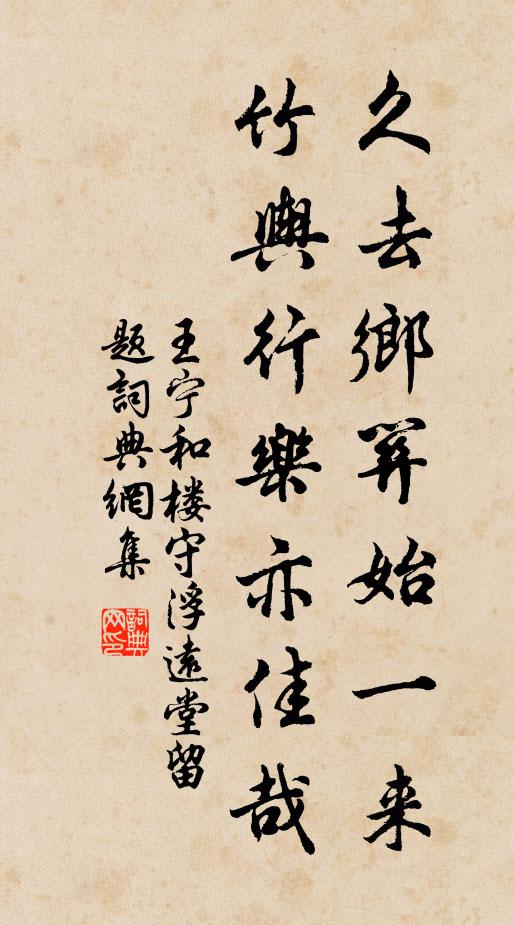 久去鄉關始一来
竹輿行樂亦佳哉
王宁和楼守浮遠堂留
题詞典網集
詞典
网印